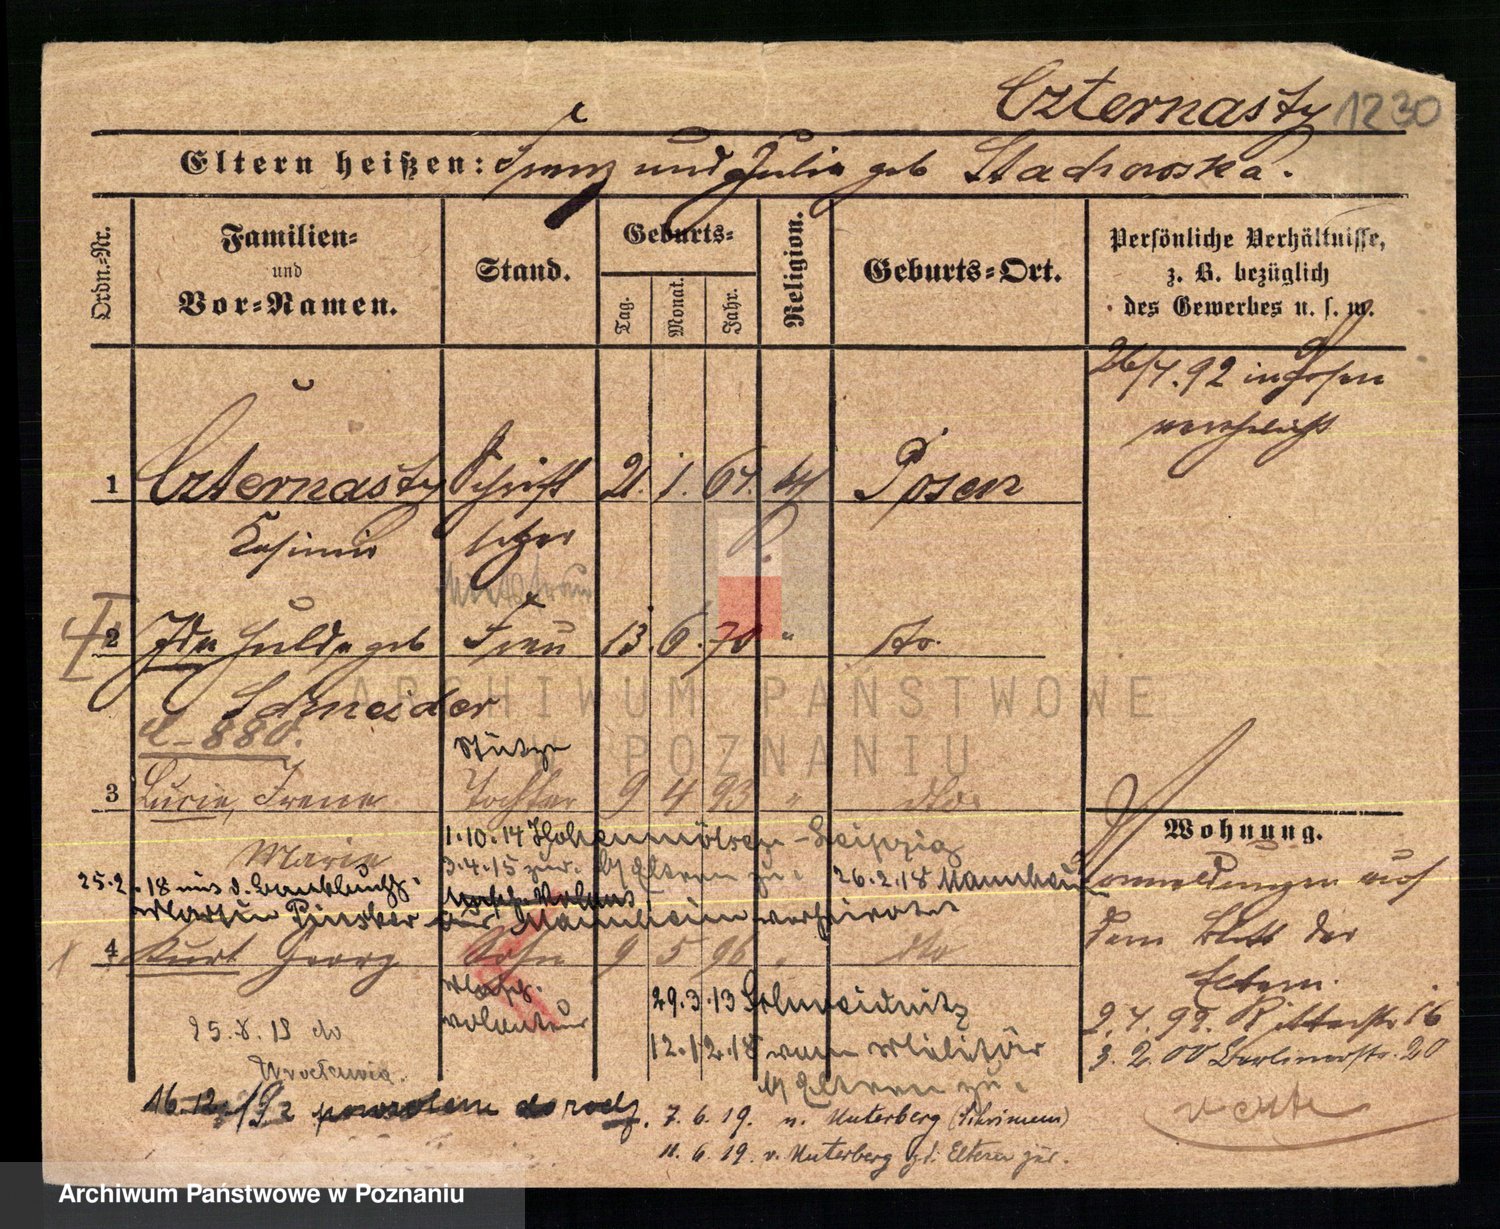 Czternasty 1230
Eltern heißen: Franz und Julia geb Stachowska.
Ordn.-Nr.
Familien-
und
Vor-Namen.
Stand.
Geburts-
Tag.
Monat.
Jahr.
Religion.
Geburts-Ort.
Persönliche Verhältnisse,
z. B. bezüglich
des Gewerbes u. s. w.
26/4.92 in Posen
verehelicht
1 Czternasty Schrift 21. 1. 64. Posen
Casimir setzer
2 Ida Hulda geb Frau 13. 6. 70 " dto.
Schneider
ARCHIWUM PAŃSTWOWE
W POZNANIU
880. Stütze
3 Lucie, Irene Tochter 9 4 93 " dto
Marie
1.10.14 Hohenmölsen-Leipzig
3.4.15 zur. Eltern zu.
25.2.18 mit d.
Martin Pinsker aus Mannheim verheiratet
26.2.18 Mannheim
4 Kurt Georg Sohn 9 5 96 " dto
volontär
29.3.13 Schweidnitz
12.12.18 vom Militär
Eltern zu.
25.8.13 do
Wrocławia.
16.12 powrotem do rodz.
7.6.19. n. Unterberg (Schrimm)
11.6.19. v. Unterberg z. d. Eltern zur.
Wohnung.
Anmeldungen auf
dem Blatt der
Eltern.
2.4.99. Ritterstr. 16
3.2.00 Berlinerstr. 20
verte
Archiwum Państwowe w Poznaniu